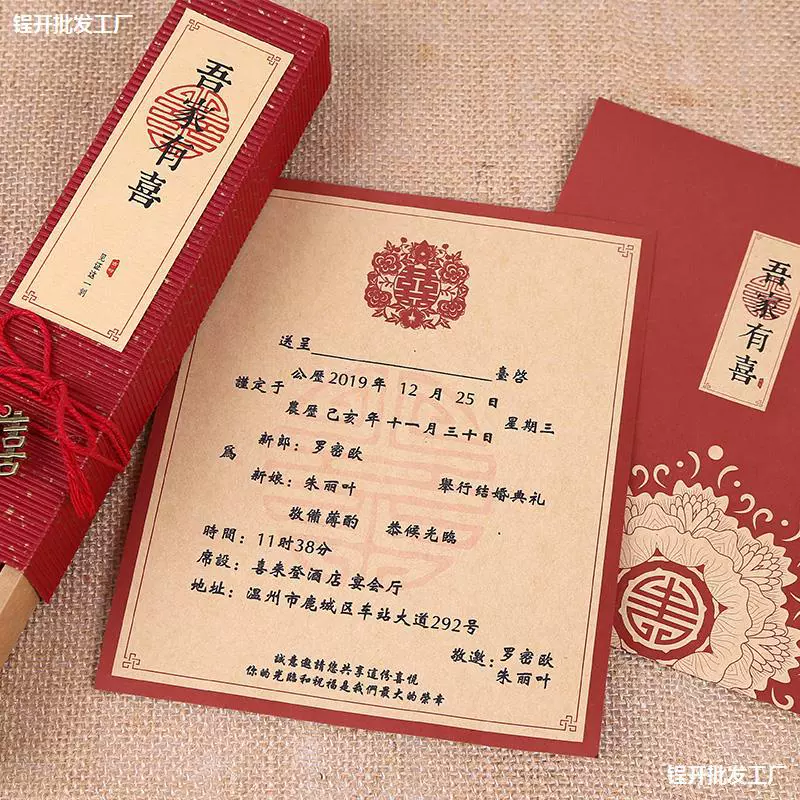 锃开批发工厂
吾家有喜
见证这一刻
送呈 臺启
謹定于
公歷2019年 12月 25日
農歷己亥年十一月三十日
星期三
為
新郎：罗密欧
新娘：朱丽叶
舉行结婚典礼
敬備薄酌 恭候光臨
時間：11时38分
席設：喜来登酒店宴会厅
地址：温州市鹿城区车站大道292号
敬邀：罗密欧
朱丽叶
誠意邀請您共享這份喜悦
你的光臨和祝福是我們最大的榮幸
吾家有喜
锃开批发工厂